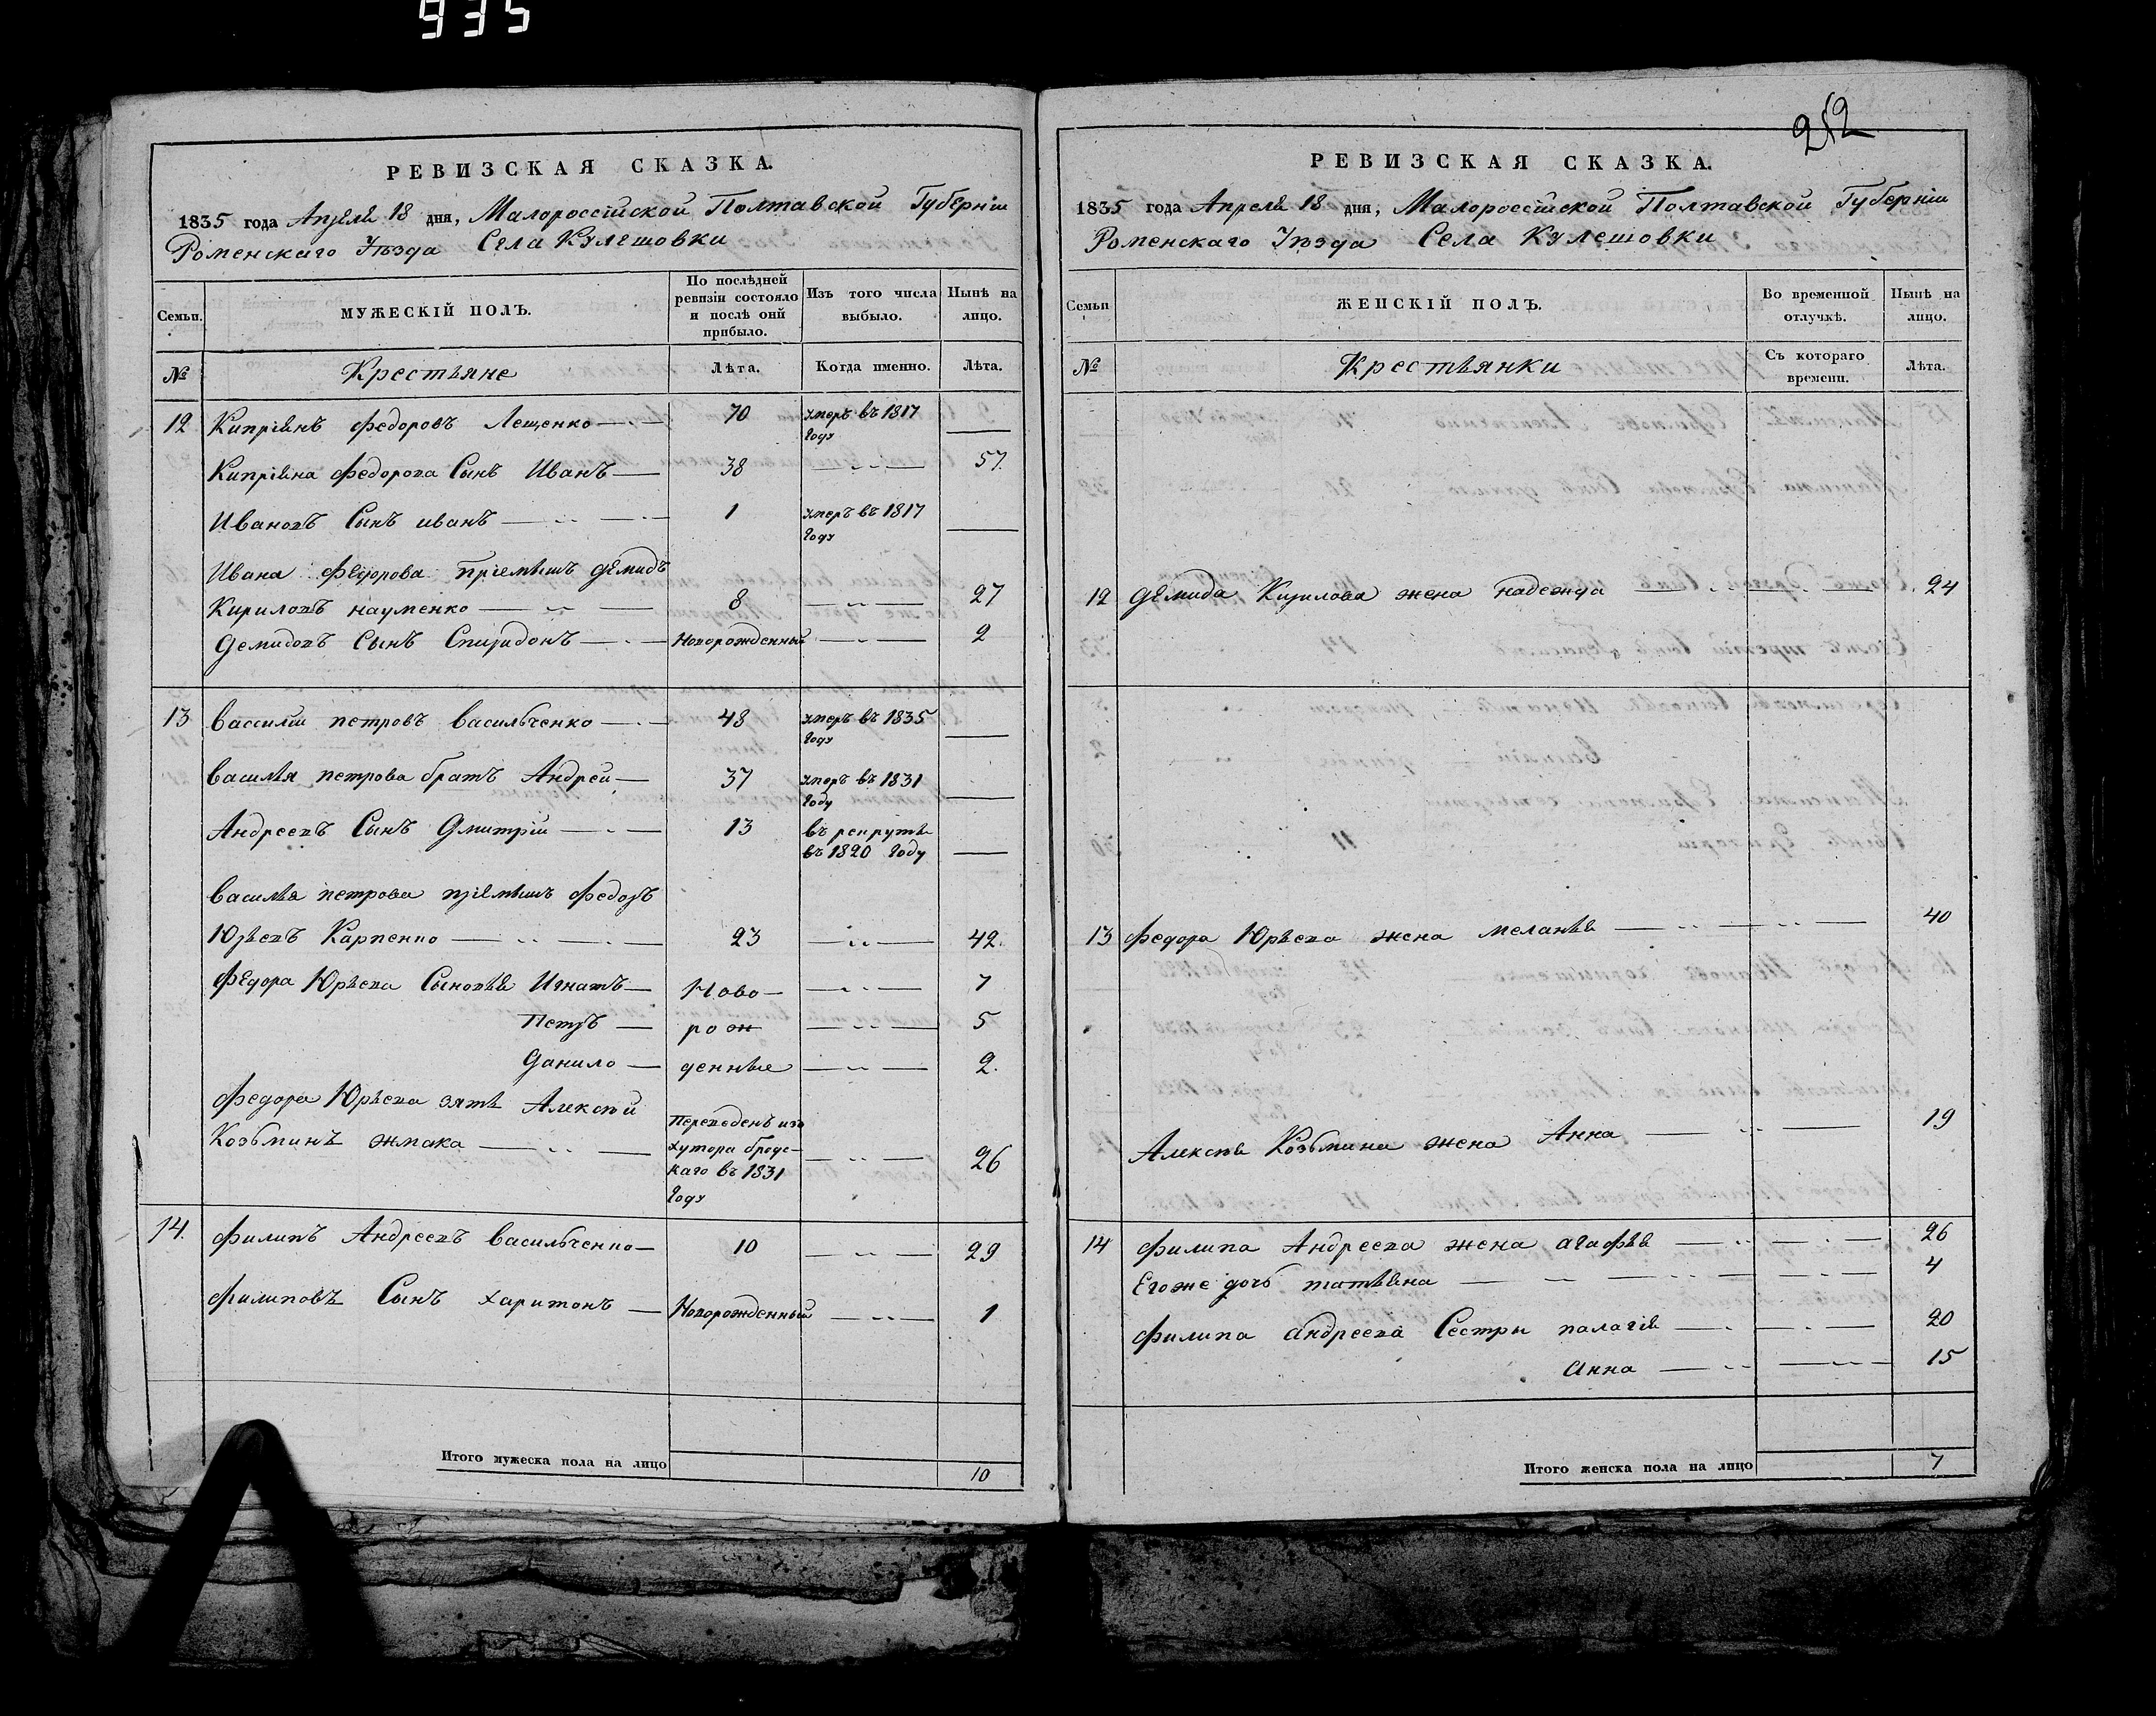 935
РЕВИЗСКАЯ СКАЗКА.
1835 года Апреля 18 дня, Малороссійской Полтавской Губерніи
Роменскаго Уѣзда Села Кулешовки
Семьи.
МУЖЕСКІЙ ПОЛЪ.
По послѣдней ревизіи состояло и послѣ оной прибыло.
Изъ того числа выбыло.
Нынѣ на лицо.
№ Крестьяне Лѣта. Когда именно. Лѣта.
12 Кипріянъ Федоровъ Лещенко 70 умеръ въ 1817
году
Кипріяна Федорова Сынъ Иванъ 38 57
Ивановъ Сынъ иванъ 1 умеръ въ 1817
году
Ивана Федорова пріемышъ Демидъ
Кириловъ науменко 8 27
Демидовъ Сынъ Спиридонъ Новорожденный 2
13 Василій петровъ васильченко 48 умеръ въ 1835
году
василія петрова братъ Андрей 37 умеръ въ 1831
году
Андреевъ Сынъ Дмитрій 13 въ рекруты
въ 1820 году
василія петрова пріемышъ Федоръ
Юрьевъ Карпенко 23 42.
Федора Юрьева Сыновья Игнатъ Ново 7
Петръ рож 5
Данило денные 2.
Федора Юрьева зять Алексѣй
Козьминъ жмака Переведенъ изъ
хутора бродс-
каго въ 1831
году
26
14. Филипъ Андреевъ васильченко 10 29
Филиповъ Сынъ харитонъ Новорожденный 1
Итого мужеска пола на лицо 10
252
РЕВИЗСКАЯ СКАЗКА.
1835 года Апреля 18 дня, Малороссійской Полтавской Губерніи
Роменскаго Уѣзда Села Кулешовки
Семьи
ЖЕНСКІЙ ПОЛЪ.
Во временной отлучкѣ.
Нынѣ на лицо.
№ Крестьянки Съ котораго времени. Лѣта.
12 Демида Кирилова жена надежда 24
13 Федора Юрьева жена меланья 40
Алексѣя Козьмина жена Анна 19
14 Филипа Андреева жена агафья 26
Егоже дочь татьяна 4
Филипа андреева Сестры палагія 20
анна 15
Итого женска пола на лицо 7